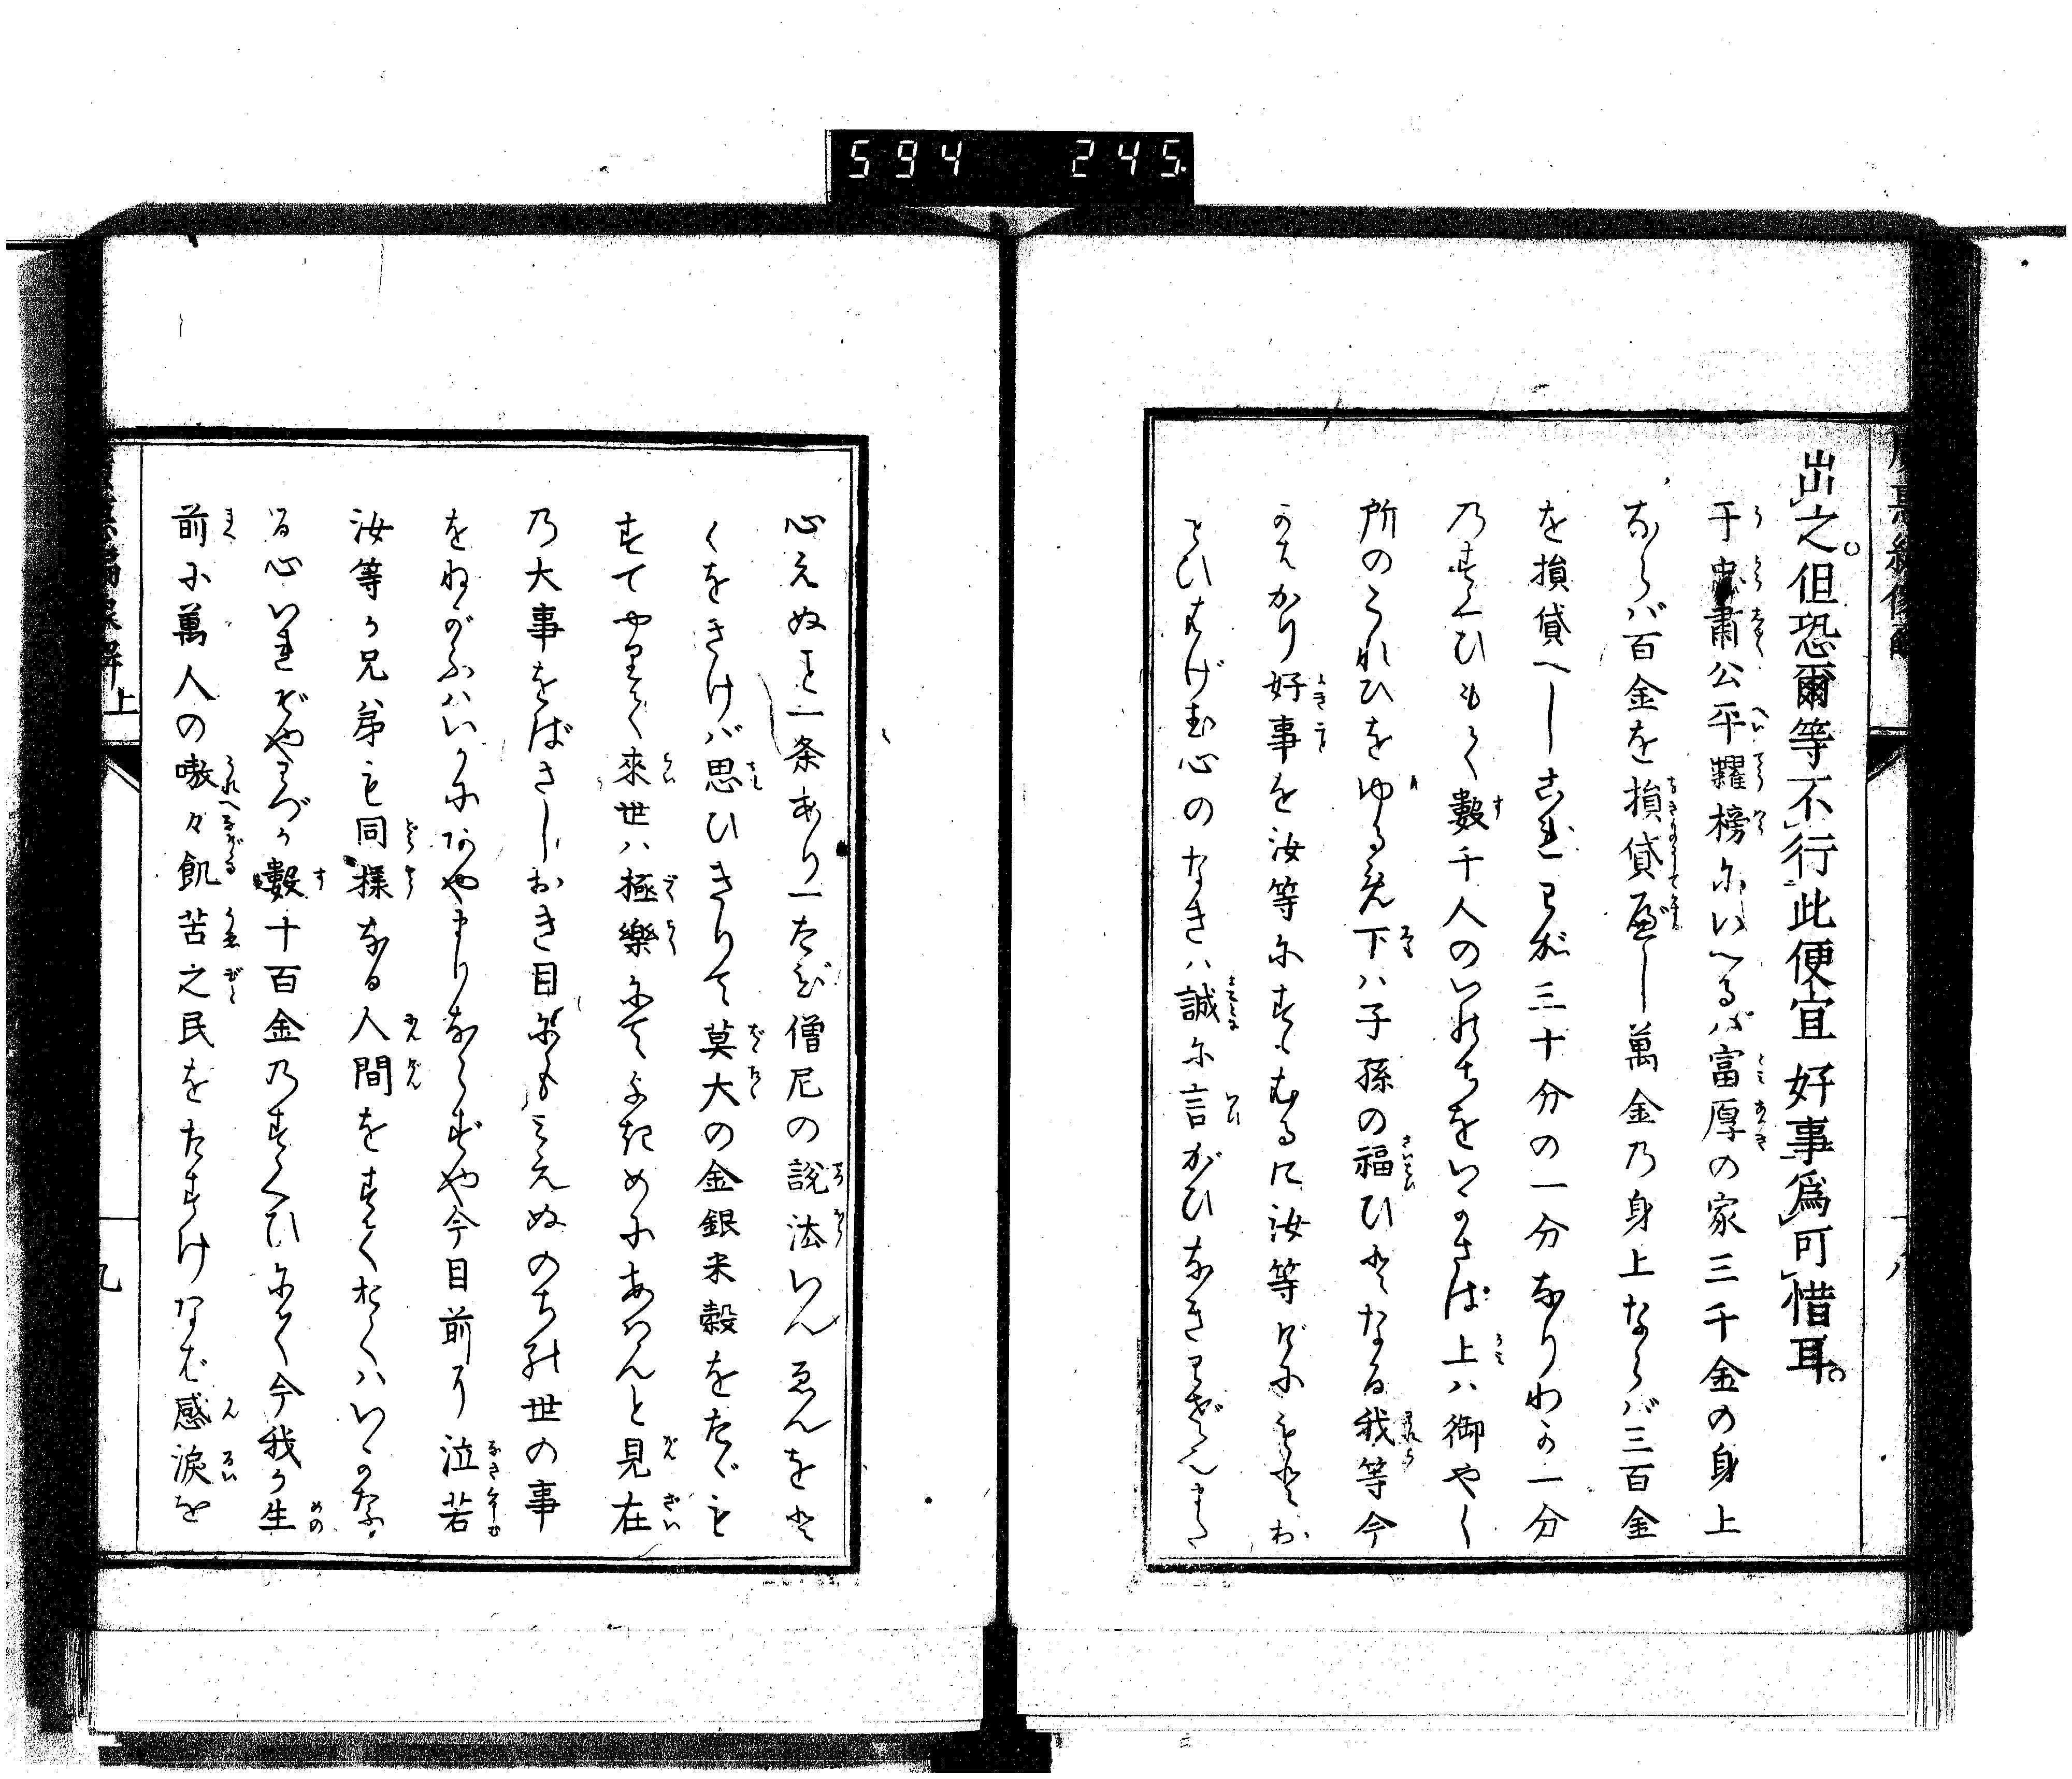 594 245
出之。但恐爾等不行此便宜好事爲可惜耳。
于忠肅公平糶榜にいへるハ富厚の家三千金の身上
ならバ百金を損貸すべし萬金乃身上ならバ三百金
を損貸べしこれ己が三十分の一分なりわづか一分
乃すくひもて數千人のいのちをいかさば上ハ御やく
所のうれひをゆるめ下ハ子孫の福ひとなる我等今
好事を汝等にすゝむるに汝等
心のなきハ誠に言がひなき
心えぬこと一条あり一たび僧尼の説法いんゑんをと
くをきけバ思ひきりて莫大の金銀米穀をたゞも
すてやりて來世ハ極樂にてよきめにあはんと見在
乃大事をばさしおき目にもみえぬのちの世の事
をねがふハいかにあやまりならずや今目前に泣苦
汝等が兄弟も同様なる人間をすくわくハいかなる
る心いれぞやわづか數十百金乃すくひにて今我が生
前に萬人の嗷々飢苦之民をたすけなば感淚を
上
九